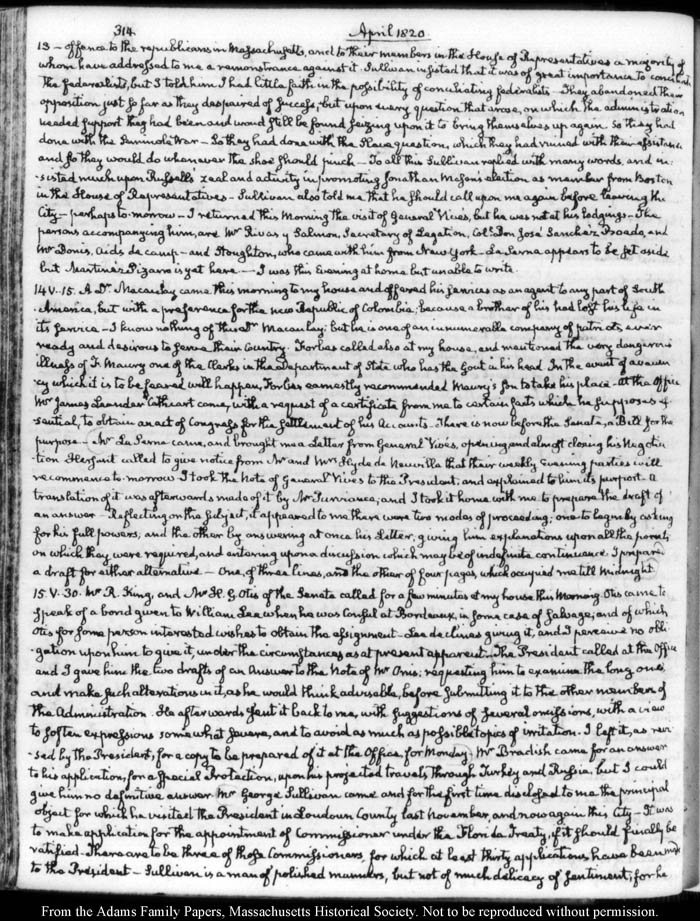 314
April 1820
13 — offence to the republicans in Massachusetts, and to their members in the House of Representatives a majority of
whom have addressed to me a remonstrance against it. Sullivan insisted that it was of great importance to conciliate
the federalists, but I told him I had little faith in the possibility of conciliating federalists — They abandoned their
opposition just so far as they despaired of success, but upon every question that arose, on which the administration
needed support they had been and would still be found seizing upon it to bring themselves up again. So they had
done with the Seminole War — So they had done with the Slave question, which they had with their assistance
and so they would do whenever the shoe should pinch — To all this Sullivan replied with many words, and in-
-sisted much upon Russell's zeal and activity in promoting Jonathan Mason's election as member from Boston
in the House of Representatives — Sullivan also told me that he should call upon me again before leaving the
City — perhaps to-morrow — I returned this Morning the visit of General Vives, but he was not at his lodgings — The
persons accompanying him, are Mr Rivas y Salmon, Secretary of Legation, Coll. Don José Sanchez and
Mr Donis, aids de camp — and Stoughton, who came with him from New York — La Serna appears to be set aside
but Martinez Pizaro is yet here — I was this Evening at home but unable to write.
14. V. 15. A Dr Macaulay came this morning to my house and offered his services as an agent to any part of South
America, but with a preference for the new Republic of Colombia; because a brother of his had lost his life in
its service — I know nothing of this Dr Macaulay; but he is one of an innumerable company of patriots, ever
ready and desirous to serve their Country. Forbes called also at my house, and mentioned the very dangerous
illness of F. Maury one of the Clerks in the Department of State who has the Gout in his head. In the event of a vacan-
cy which it is to be feared will happen, Forbes earnestly recommended Maury's Son to take his place — At the Office
Mr James Leander Cathcart came, with a request of a certificate from me to certain facts which he supposes es-
-sential, to obtain an act of Congress for the settlement of his Accounts. There is now before the Senate, a Bill for the
purpose — Mr La Serna came, and brought me a Letter from General Vivés, opening and almost closing his Negotia-
tion. Hersant called to give notice from Mr and Mrs Hyde de Neuville that their weekly Evening parties will
recommence to-morrow. I took the Note of General Vives to the President, and explained to him its purport. A
translation of it was afterwards made of it by Mr Purviance; and I took it home with me to prepare the draft of
an answer — Reflecting on the subject, it appeared to me there were two modes of proceeding; one to begin by asking
for his full powers, and the other by answering at once his Letter, giving him explanations upon all the points,
on which they were required, and entering upon a discussion which may be of indefinite continuance. I prepare
a draft for either alternative — One, of three lines, and the other of four pages, which occupied me till Midnight.
15. V. 30. Mr R. King, and Mr H. G. Otis of the Senate called for a few minutes at my house this Morning. Otis came to
speak of a bond given to William Lee when he was Consul at Bordeaux, in some case of Salvage; and of which
Otis for some person interested wishes to obtain the assignment — Lee declines giving it, and I perceive no obli-
-gation upon him to give it, under the circumstances as at present apparent. The President called at the Office
and I gave him the two drafts of an Answer to the Note of Mr Onis; requesting him to examine the long one;
and make such alterations in it, as he would think advisable, before submitting it to the other members of
the Administration. He afterwards sent it back to me, with suggestions of several omissions, with a view
to soften expressions somewhat severe, and to avoid as much as possible topics of irritation. I left it, as revi-
-sed by the President, for a copy to be prepared of it at the Office, for Monday. Mr Bradish came for an answer
to his application, for a special Protection, upon his projected travels through Turkey and Russia, but I could
give him no definitive answer. Mr George Sullivan came and for the first time disclosed to me the principal
object for which he visited the President in Loudoun County last November, and now again this City — It was
to make application for the appointment of Commissioner under the Florida Treaty, if it should finally be
ratified — There are to be three of those Commissioners, for which at least thirty applications have been made
to the President — Sullivan is a man of polished manners, but not of much delicacy of sentiment; for he
From the Adams Family Papers, Massachusetts Historical Society. Not to be reproduced without permission.